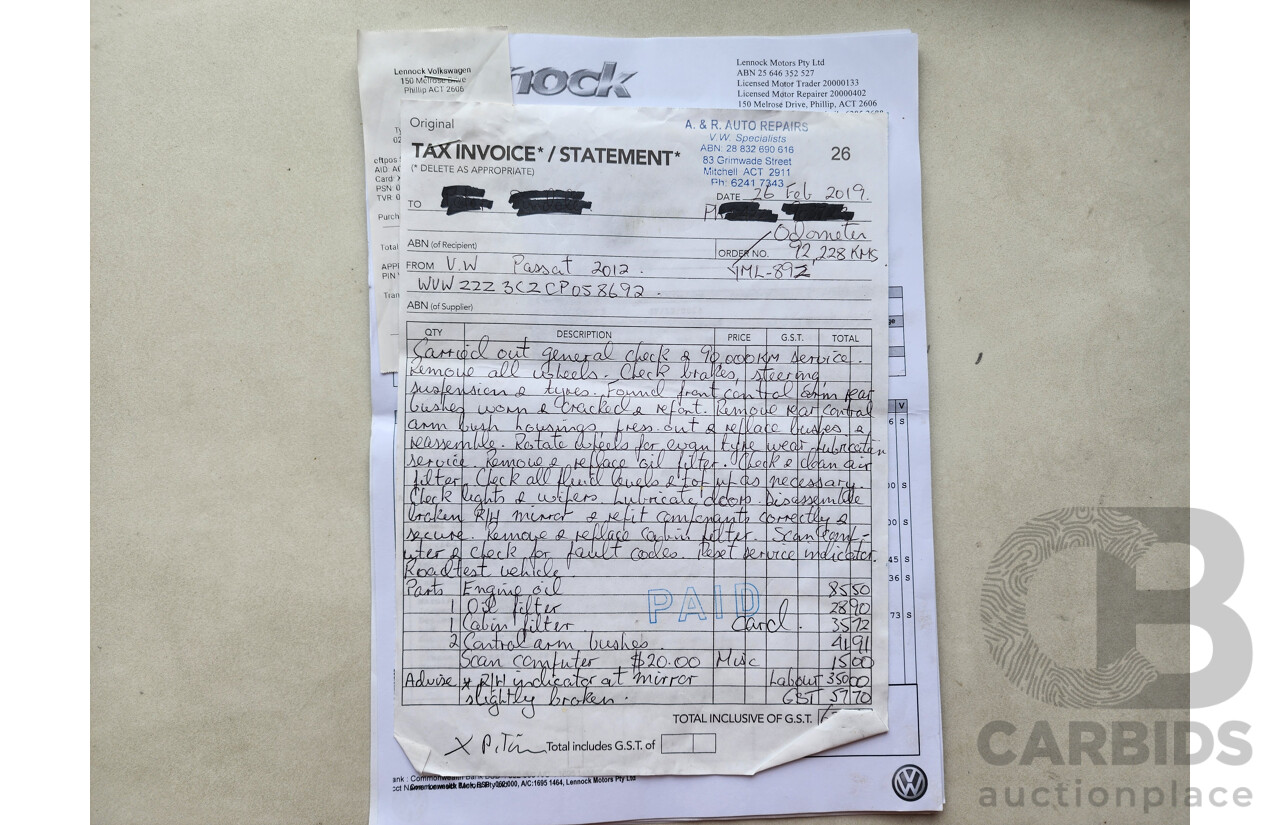 Lennock Volkswagen
150 Melrose Drive
Phillip ACT 2606
nock
Lennock Motors Pty Ltd
ABN 25 646 352 527
Licensed Motor Trader 20000133
Licensed Motor Repairer 20000402
150 Melrose Drive, Phillip, ACT 2606
eftpos
AID: A0
Card: X
PSN: 0
TVR: 0
Purch
Total
APPI
PIN
Tran
Original
A. & R. AUTO REPAIRS
V.W. Specialists
ABN: 28 832 690 616
83 Grimwade Street
Mitchell ACT 2911
Ph: 6241 7343
26
TAX INVOICE* / STATEMENT*
(* DELETE AS APPROPRIATE)
DATE 26 Feb 2019.
TO
Odometer
ABN (of Recipient)
ORDER NO. 92,228 KMS
FROM V.W Passat 2012.
YML-89Z
WVWZZZ3CZCP058692.
ABN (of Supplier)
QTY DESCRIPTION PRICE G.S.T. TOTAL
Carried out general check & 90,000KM service.
Remove all wheels. Check brakes, steering,
suspension & tyres. Found front control arm rear
bushes worn & cracked & report. Remove rear control
arm bush housings, press out & replace bushes &
reassemble. Rotate wheels for even tyre wear. Lubrication
service. Remove & replace oil filter. Check & clean air
filter. Check all fluid levels & top up as necessary.
Check lights & wipers. Lubricate doors. Disassemble
broken R/H mirror & refit components correctly &
secure. Remove & replace cabin filter. Scan comp-
uter & check for fault codes. Reset service indicator.
Roadtest vehicle.
Parts Engine oil 85 50
1 Oil filter 28 90
PAID
1 Cabin filter Card. 35 72
2 Control arm bushes. 41 91
Scan computer $20.00 Misc 15 00
Advise * R/H indicator at mirror Labour 350 00
slightly broken. GST 57 70
TOTAL INCLUSIVE OF G.S.T.
Total includes G.S.T. of
A/C:1695 1464, Lennock Motors Pty Ltd
CB
CARBIDS
auctionplace